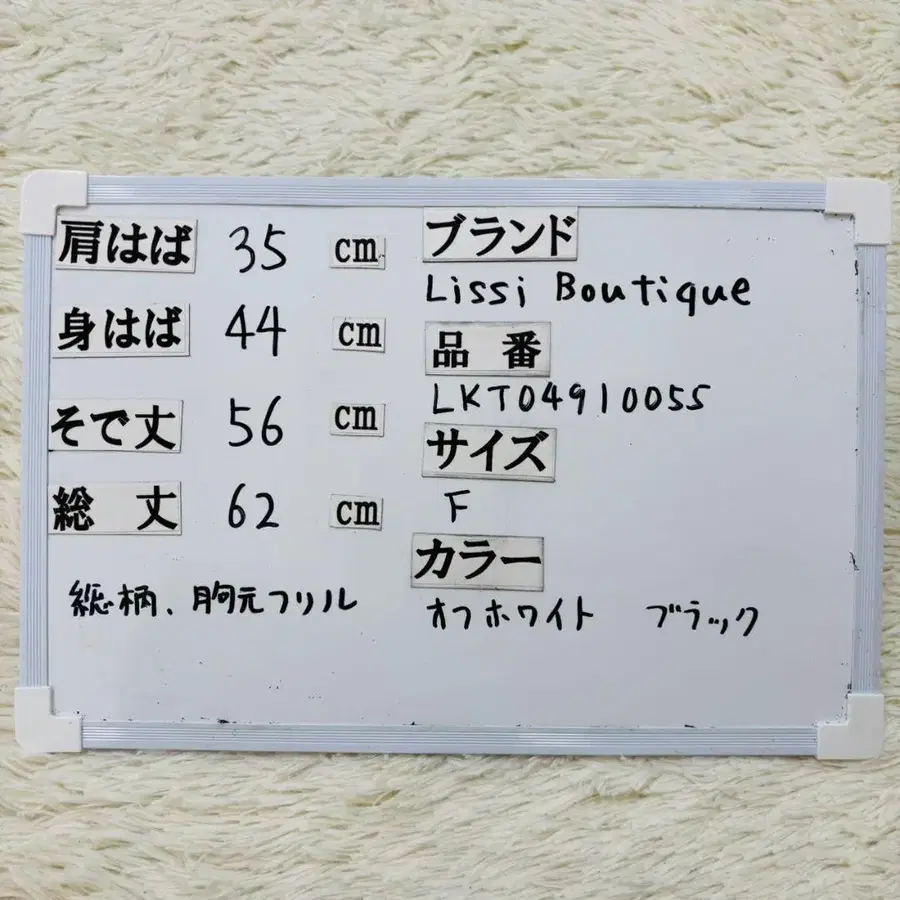 肩はば 35 cm
身はば 44 cm
そで丈 56 cm
総 丈 62 cm
総柄、胸元フリル
ブランド
Lissi Boutique
品 番
LKT04910055
サイズ
F
カラー
オフホワイト ブラック